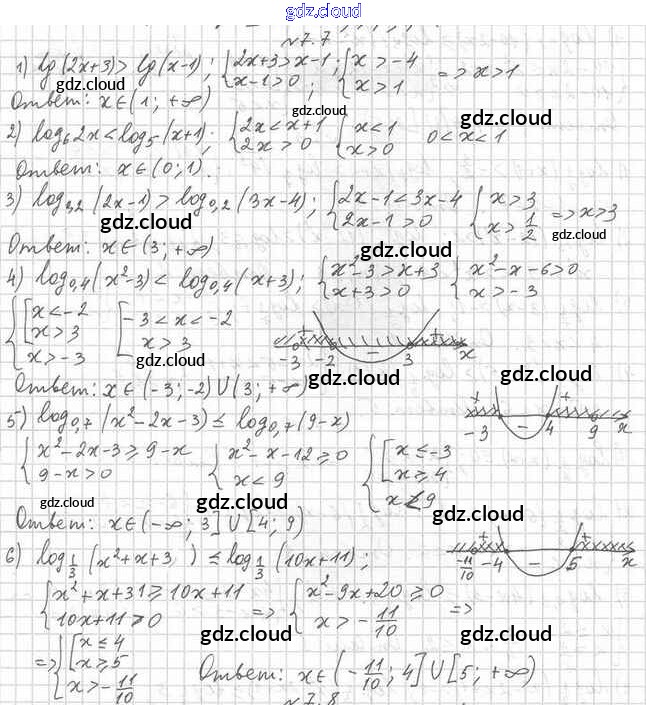 gdz.cloud
№7.7
1) lg(2x+3) > lg(x-1); {2x+3>x-1; x-1>0; {x>-4 x>1 => x>1
gdz.cloud
Ответ: x∈(1; +∞)
2) log₆2x < log₅(x+1); {2x<x+1 2x>0 {x<1 x>0 0<x<1
gdz.cloud
Ответ: x∈(0;1).
3) log₃,₂(2x-1) > log₀,₂(3x-4); {2x-1<3x-4 2x-1>0 {x>3 x>1/2 => x>3
gdz.cloud
Ответ: x∈(3; +∞)
gdz.cloud
4) log₀,₄(x²-3) < log₀,₄(x+3); {x²-3>x+3 x+3>0 {x²-x-6>0 x>-3
gdz.cloud
{[x<-2 x>3 x>-3 [-3<x<-2 x>3
+ - + -3 -2 3 x
gdz.cloud
Ответ: x∈(-3;-2)∪(3; +∞)
gdz.cloud
5) log₀,₇(x²-2x-3) ≤ log₀,₇(9-x)
+ - + -3 4 9 x
{x²-2x-3≥9-x 9-x>0 {x²-x-12≥0 x<9 {[x≤-3 x≥4 x<9
gdz.cloud
Ответ: x∈(-∞; 3]∪[4; 9)
gdz.cloud
6) log₁/₃(x²+x+3 ) ≤ log₁/₃(10x+11);
+ - + -11/10 -4 5 x
{x²+x+31≥10x+11 10x+11>0 => {x²-9x+20≥0 x>-11/10 =>
gdz.cloud
=> {[x≤4 x≥5 x>-11/10
Ответ: x∈(-11/10; 4]∪[5; +∞)
gdz.cloud
№7.8